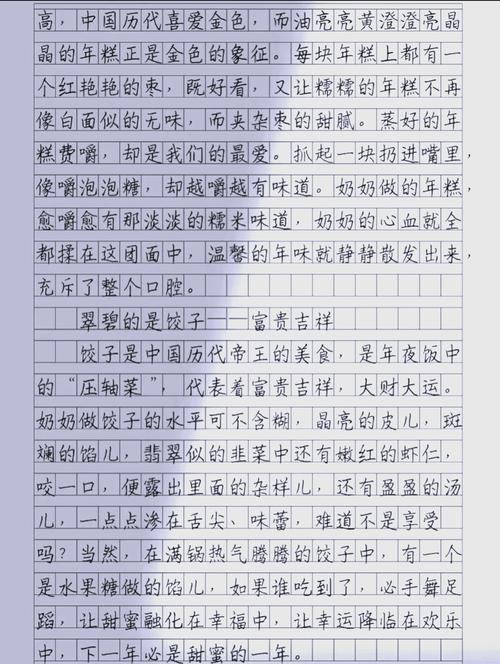 高，中国历代喜爱金色，而油亮亮黄澄澄亮晶
晶的年糕正是金色的象征。每块年糕上都有一
个红艳艳的枣，既好看，又让糯糯的年糕不再
像白面似的无味，而夹杂枣的甜腻。蒸好的年
糕费嚼，却是我们的最爱。抓起一块扔进嘴里，
像嚼泡泡糖，却越嚼越有味道。奶奶做的年糕，
愈嚼愈有那淡淡的糯米味道，奶奶的心血就全
都揉在这团面中，温馨的年味就静静散发出来，
充斥了整个口腔。
翠碧的是饺子——富贵吉祥
饺子是中国历代帝王的美食，是年夜饭中
的“压轴菜”，代表着富贵吉祥，大财大运。
奶奶做饺子的水平可不含糊，晶亮的皮儿，斑
斓的馅儿，翡翠似的韭菜中还有嫩红的虾仁，
咬一口，便露出里面的杂样儿，还有盈盈的汤
儿，一点点渗在舌尖、味蕾，难道不是享受
吗？当然，在满锅热气腾腾的饺子中，有一个
是水果糖做的馅儿，如果谁吃到了，必手舞足
蹈，让甜蜜融化在幸福中，让幸运降临在欢乐
中，下一年必是甜蜜的一年。